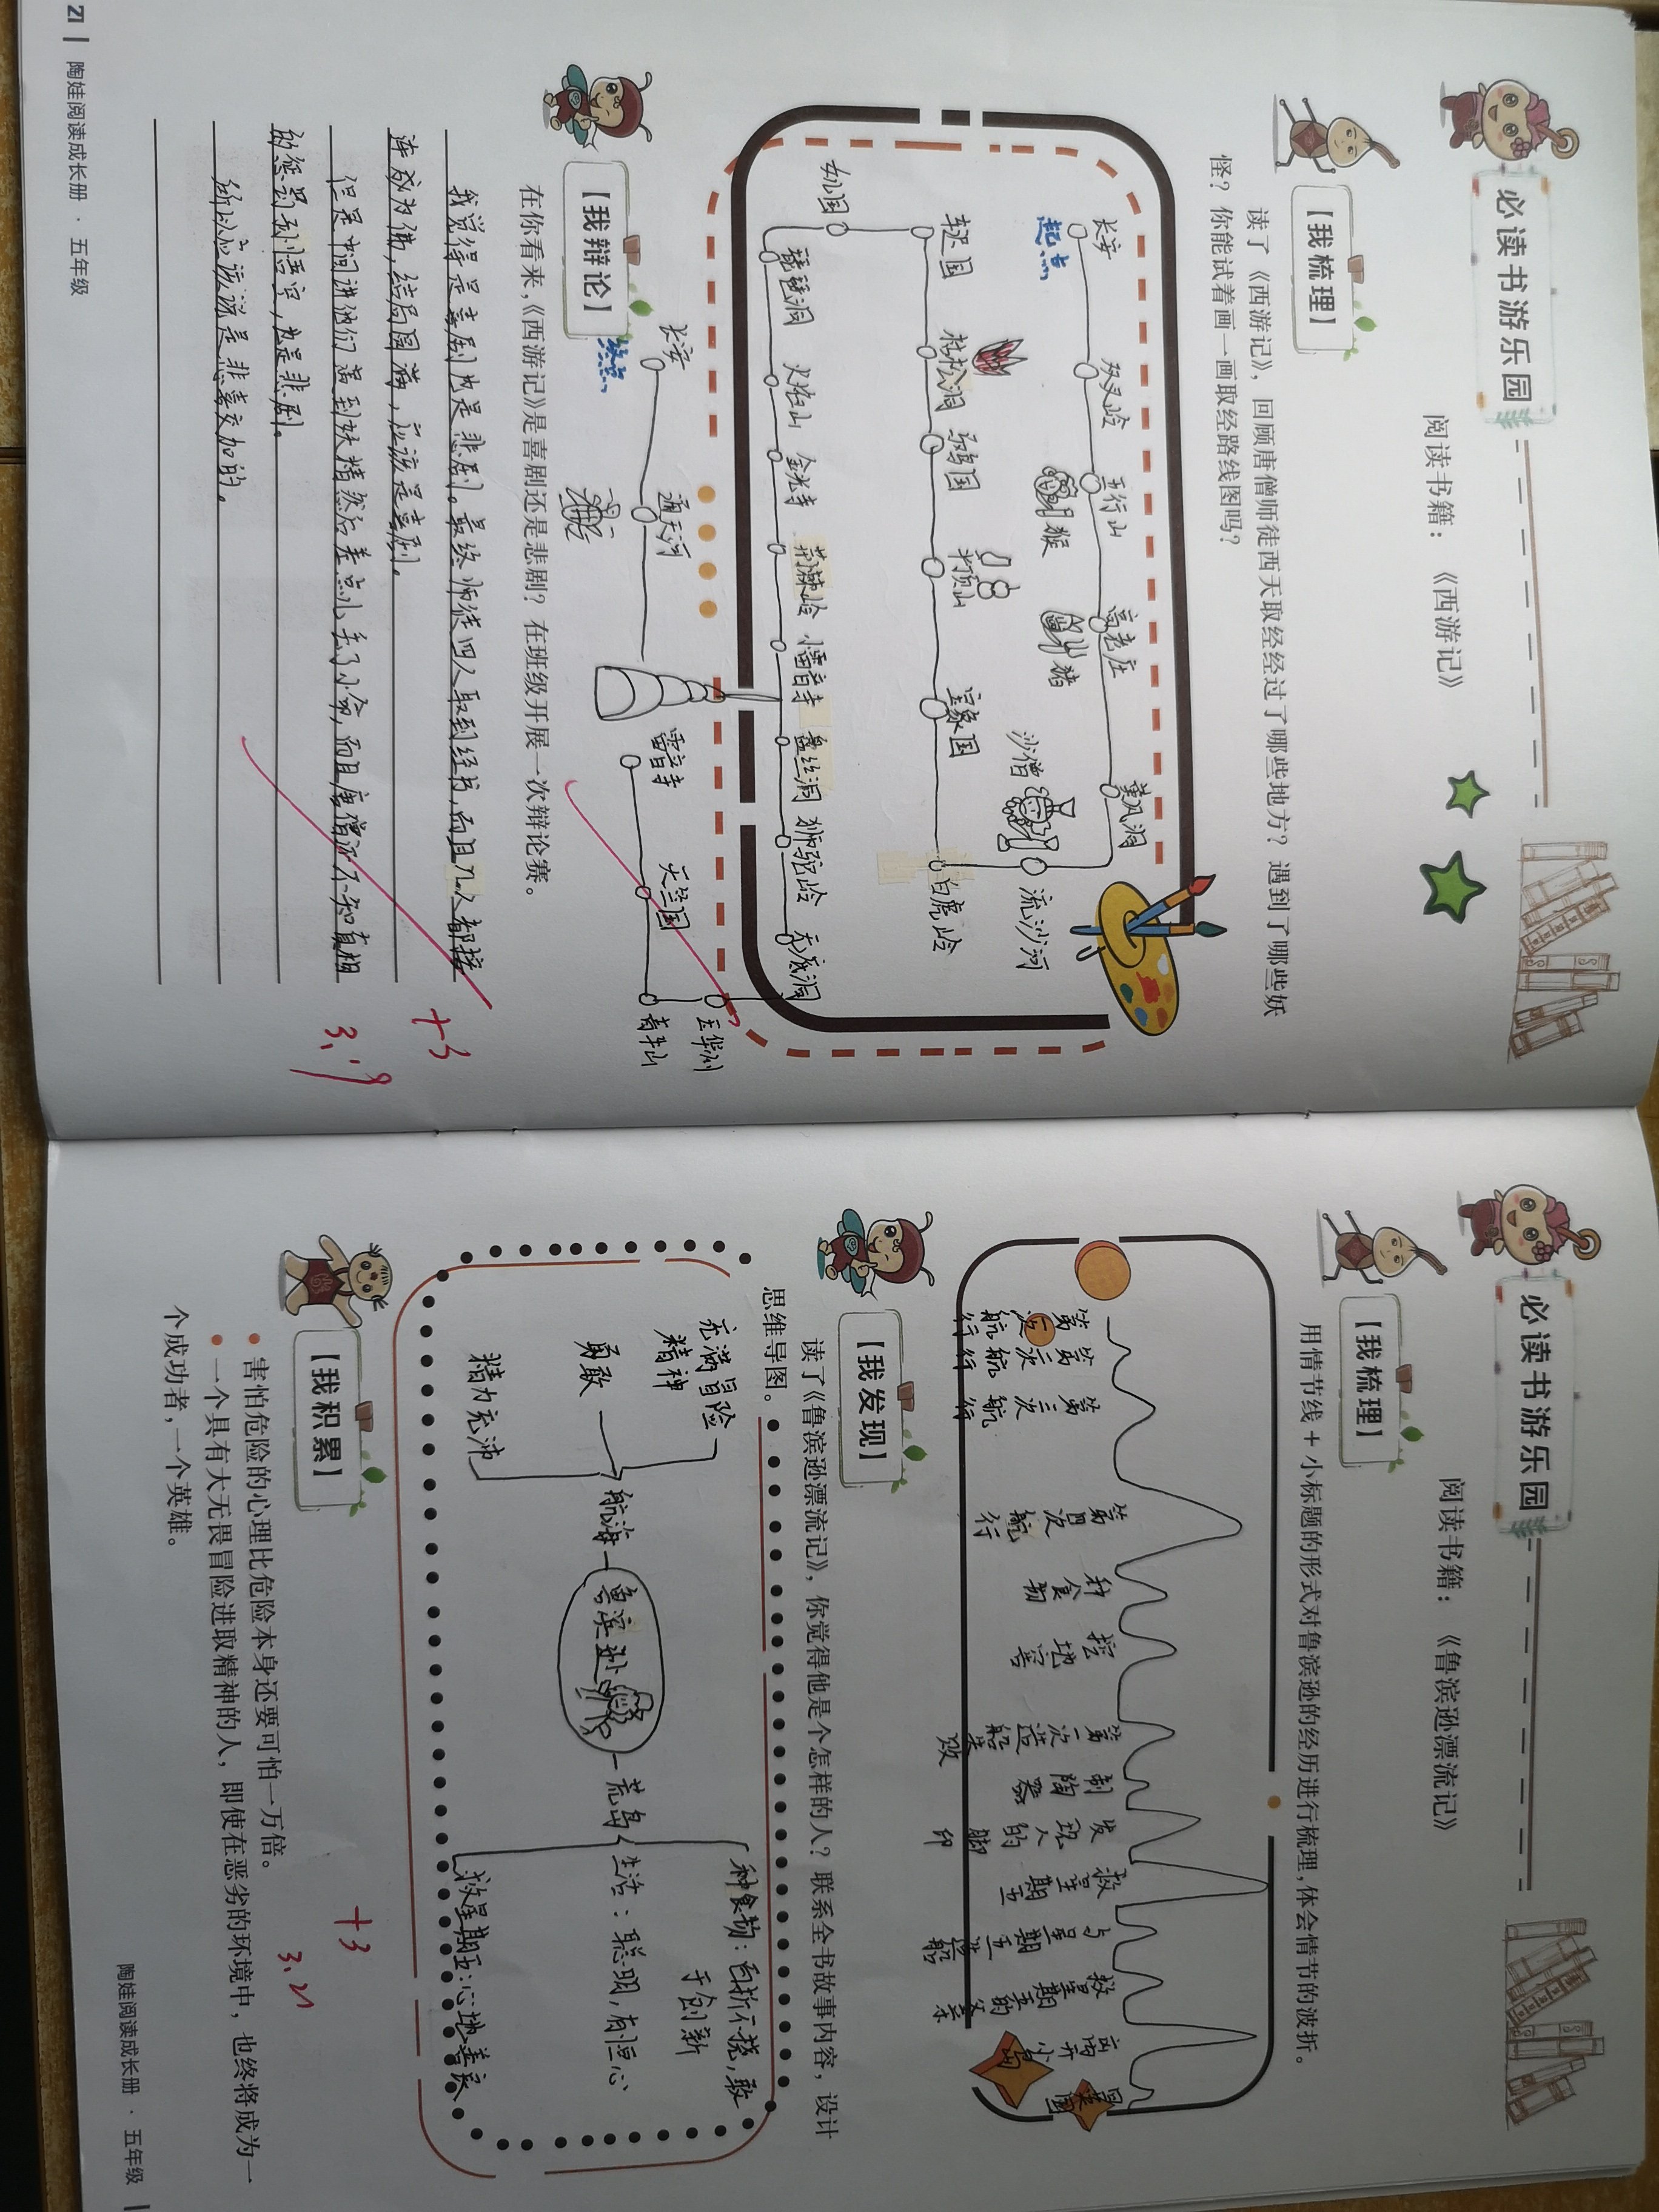 必读书游乐园
阅读书籍：《西游记》
【我梳理】
读了《西游记》，回顾唐僧师徒西天取经经过了哪些地方？遇到了哪些妖
怪？你能试着画一画取经路线图吗？
长安
起点
双叉岭
五行山
猴
高老庄
猪
黄风洞
流沙河
沙僧
白虎岭
宝象国
平顶山
乌鸡国
枯松洞
车迟国
女儿国
琵琶洞
火焰山
金光寺
荆棘岭
小雷音寺
盘丝洞
狮驼岭
无底洞
玉华州
青华山
天竺国
雷音寺
通天河
长安
终点
【我辩论】
在你看来，《西游记》是喜剧还是悲剧？在班级开展一次辩论赛。
我觉得是喜剧也是悲剧。最终师徒四人取到经书，而且几人都接
连成为佛，结局圆满，应该是喜剧。
但是中间讲他们遇到妖精然后差点儿丢了小命，而且唐僧还不知真相
的惩罚孙悟空，也是悲剧。
所以应该说是悲喜交加的。
+3
3.19
21 | 陶娃阅读成长册 · 五年级
必读书游乐园
阅读书籍：《鲁滨逊漂流记》
【我梳理】
用情节线 + 小标题的形式对鲁滨逊的经历进行梳理，体会情节的波折。
第一次航行
第二次航行
第三次航行
第四次航行
种食物
挖地窖
第一次造船失败
制陶器
发现人的脚印
救星期五
与星期五造船
救星期五的父亲
离开小岛
回英国
【我发现】
读了《鲁滨逊漂流记》，你觉得他是个怎样的人？联系全书故事内容，设计
思维导图。
充满冒险
精神
勇敢
精力充沛
航海
鲁滨逊
荒岛
种食物：百折不挠，敢
于创新
生活：聪明，有恒心
救星期五：心地善良
【我积累】
害怕危险的心理比危险本身还要可怕一万倍。
一个具有大无畏冒险进取精神的人，即使在恶劣的环境中，也终将成为一
个成功者，一个英雄。
+3
3.21
陶娃阅读成长册 · 五年级 |